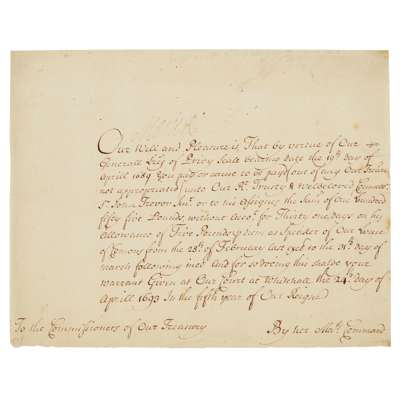 Our Will and Pleasure is That by vertue of Our
Generall Lrs of Privy Seale bearing date the 19th day of
Aprill 1689 You pay or cause to be payd out of any Our Treasure
not appropriated unto Our Rt. Trusty & Welbeloved
Sr. John Trevor Knt. or to his Assignes the Sum of One hundred
fifty five Pounds without Accot. for Thirty one days on his
Allowance of Five Pounds p diem as Speaker of Our House
of Comons from the 28th. of February last past to the 31th. day of
March following incl. And for so doeing this shalbe your
Warrant Given at Our Court at Whitehall the 24th. day of
Aprill 1693 In the fifth year of Our Reigne
To the Commissioners of Our Treasury
By her Maty. Command